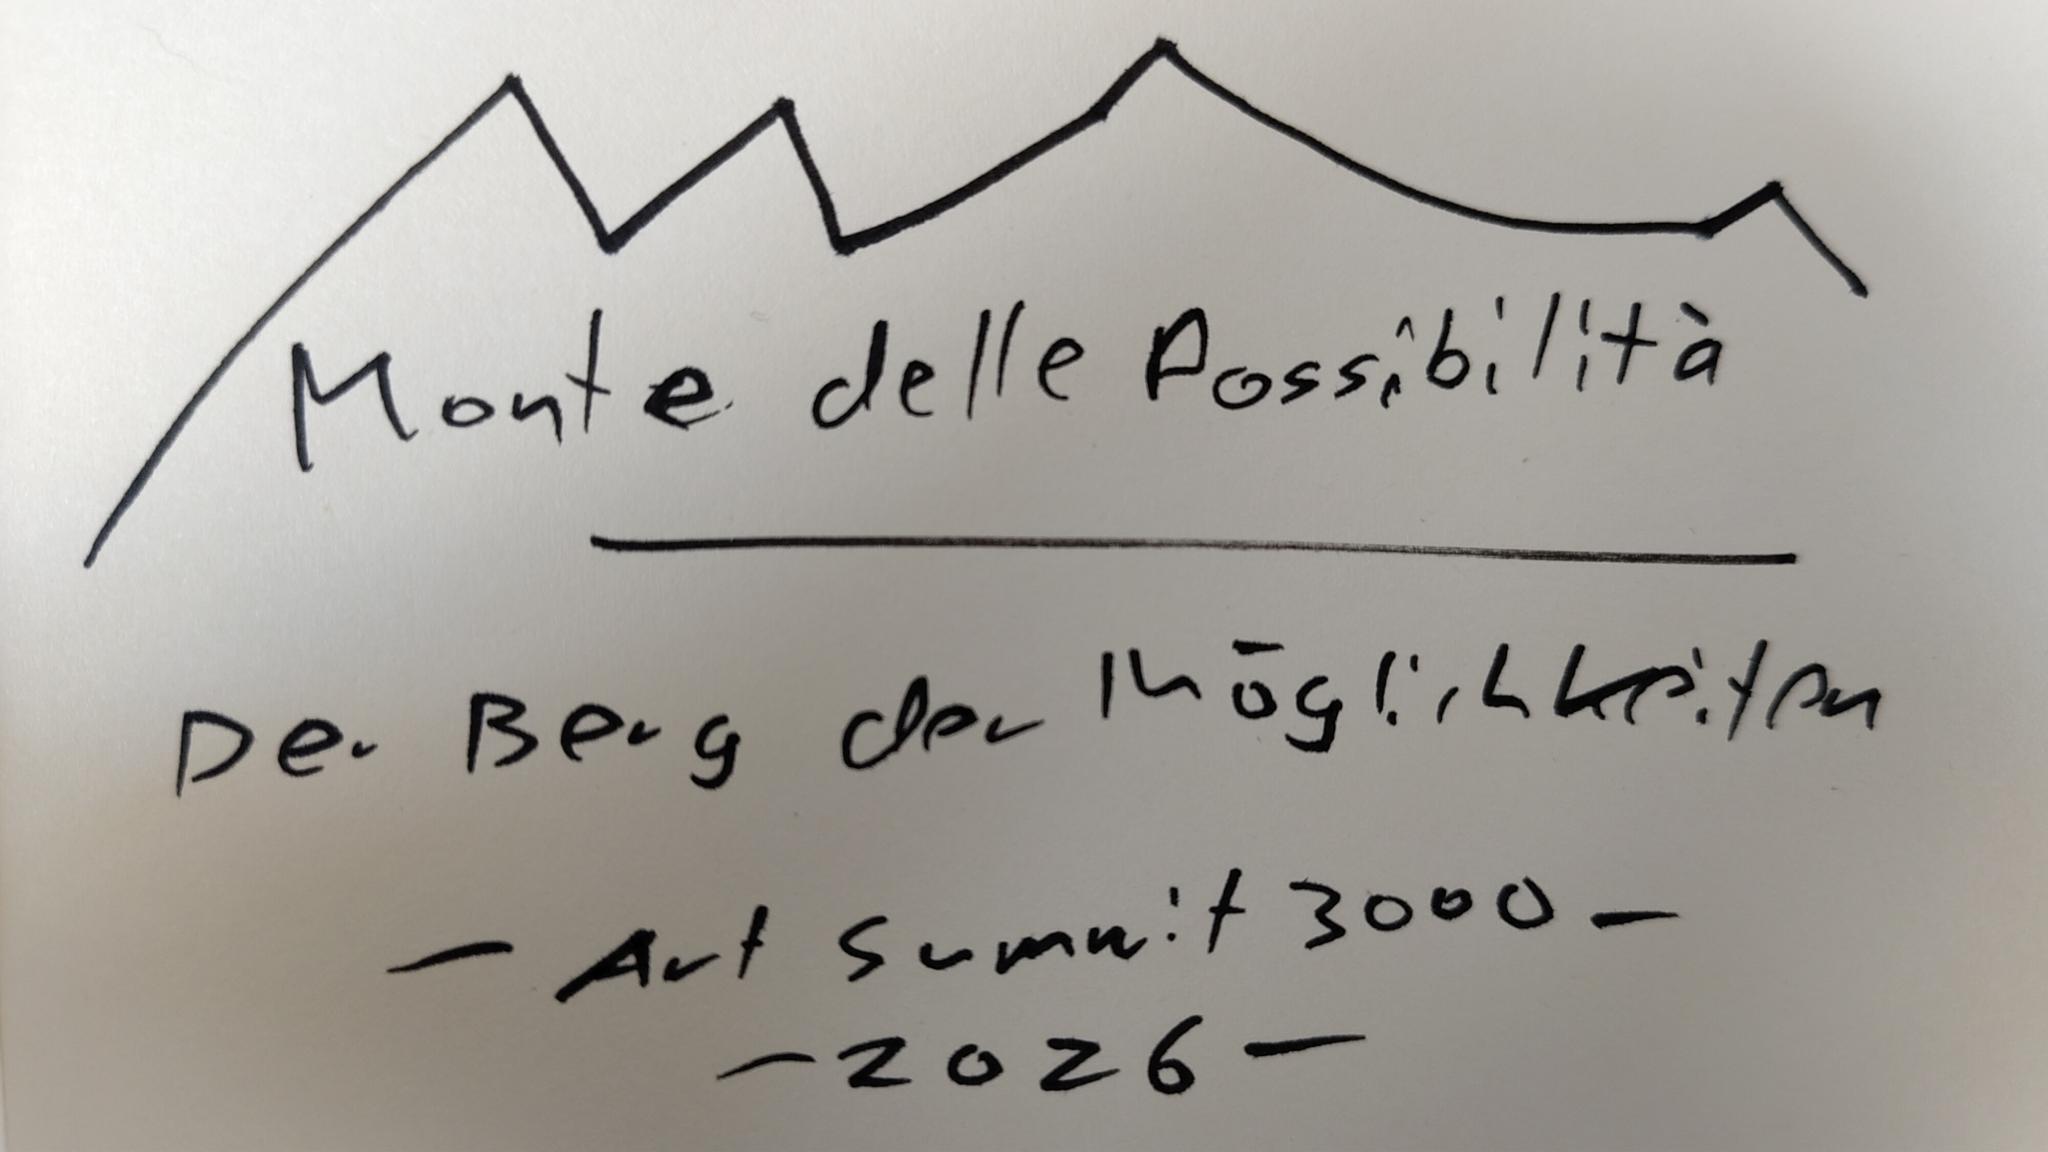 Monte delle Possibilità
Der Berg der Möglichkeiten
- Art Summit 3000 -
- 2026 -